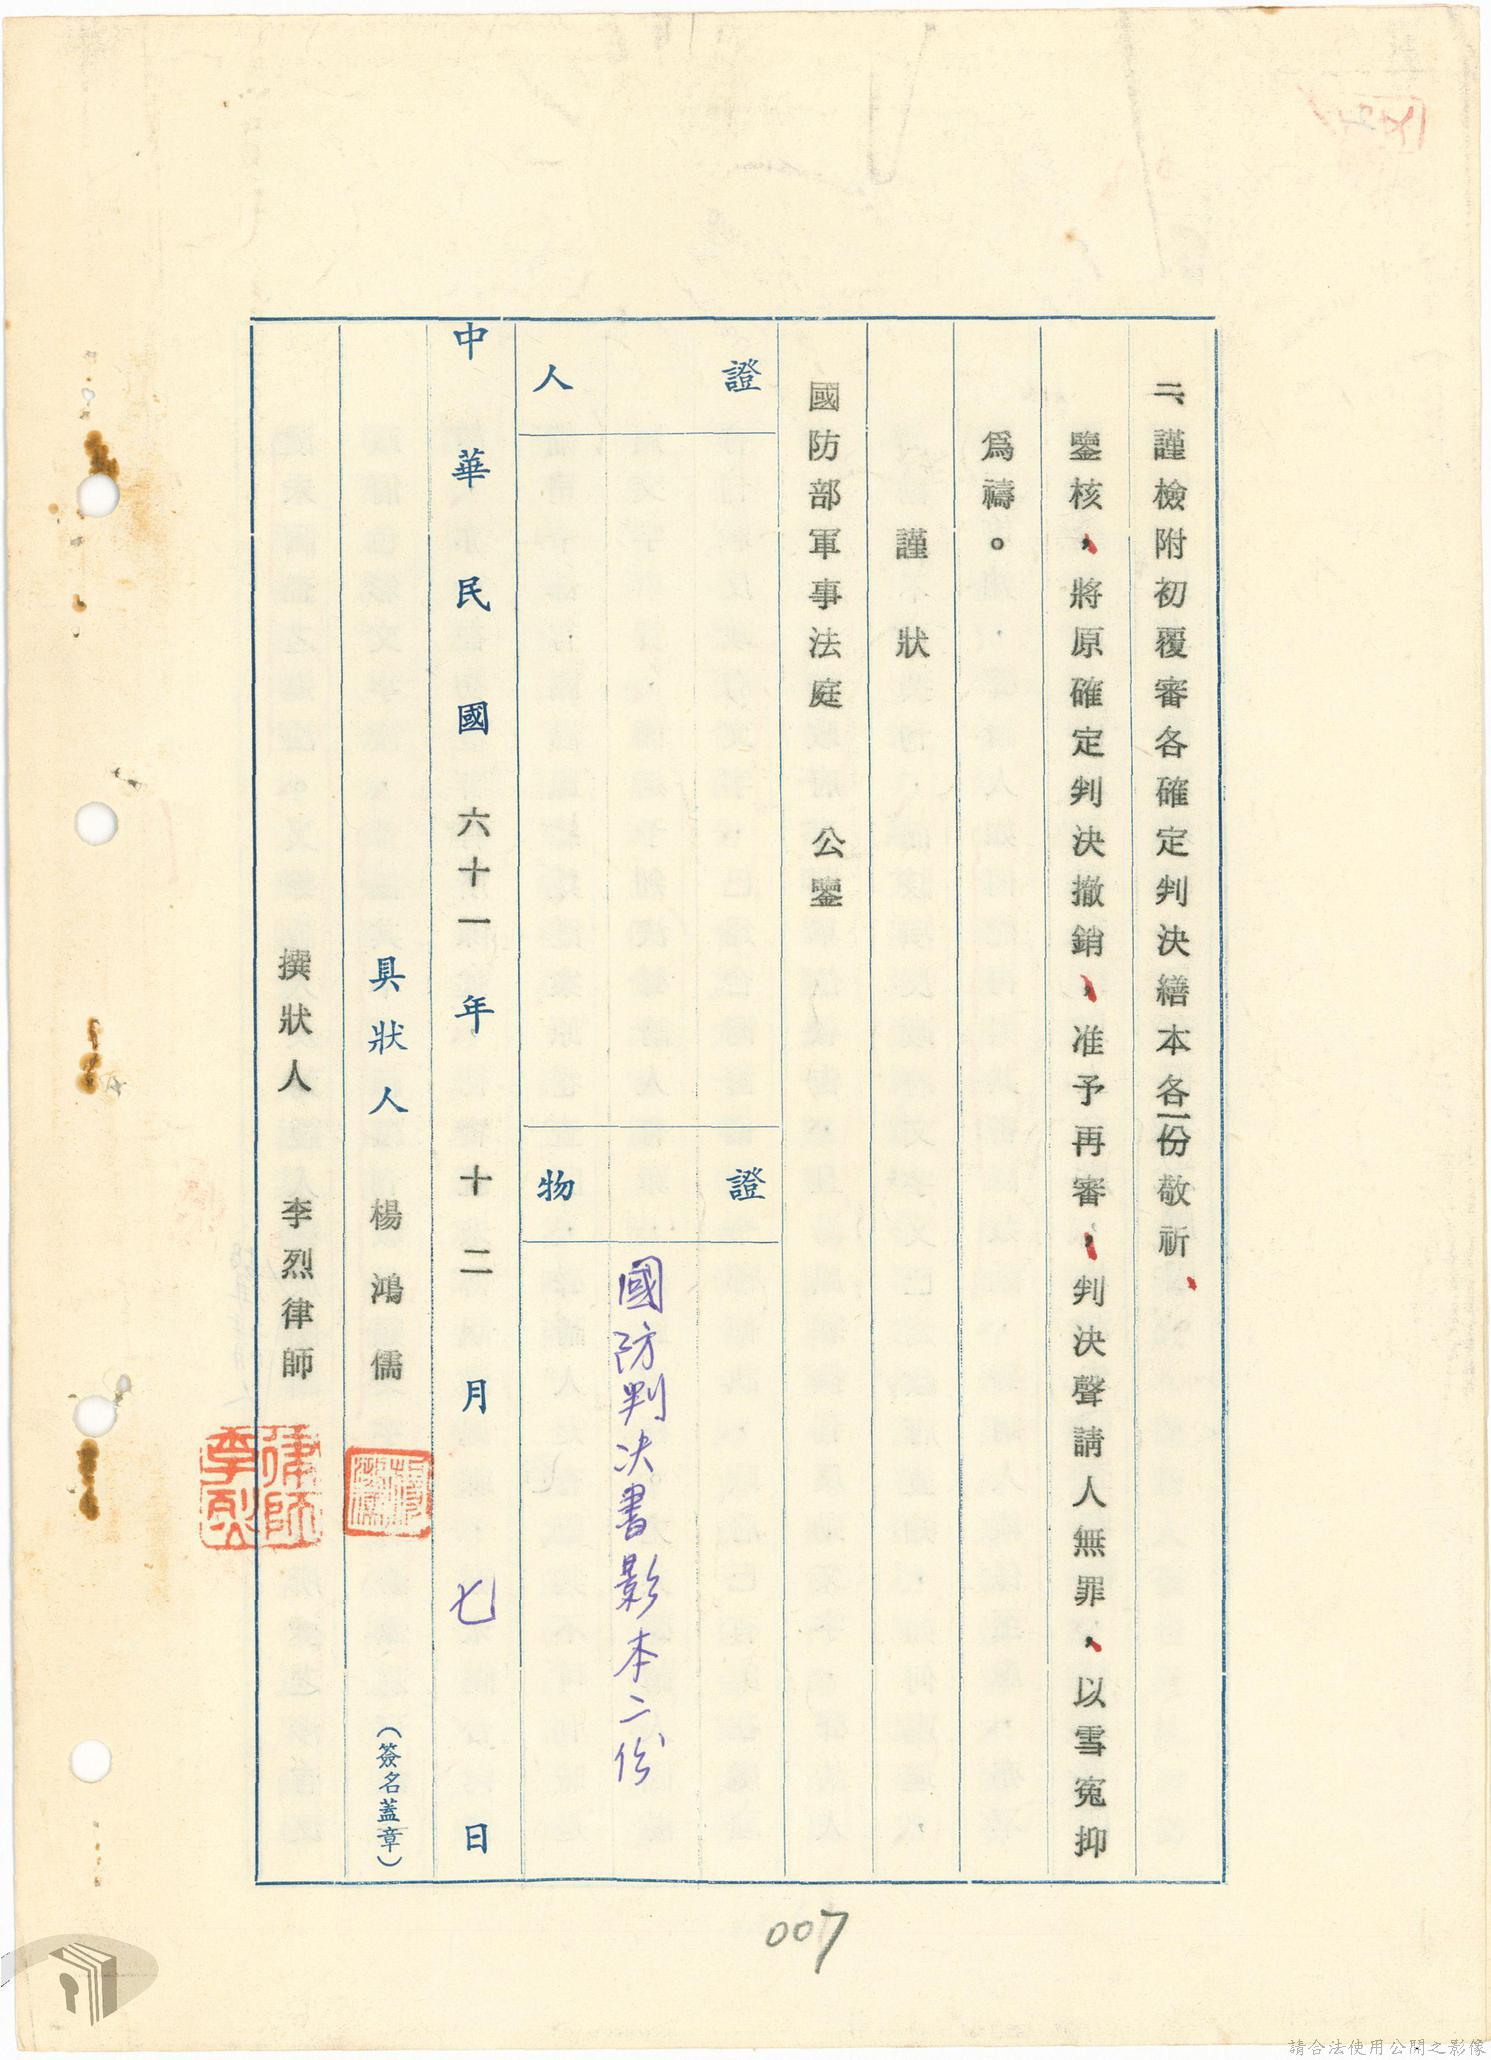 二、謹檢附初覆審各確定判決繕本各一份敬祈、
鑒核，將原確定判決撤銷，准予再審，判決聲請人無罪，以雪寃抑
爲禱。
謹狀
國防部軍事法庭　公鑒
證人
證物
國防判决書影本二份
中華民國六十一年十二月七日
具狀人　楊鴻儒　（簽名蓋章）
撰狀人　李烈律師
律師李烈
007
請合法使用公開之影像